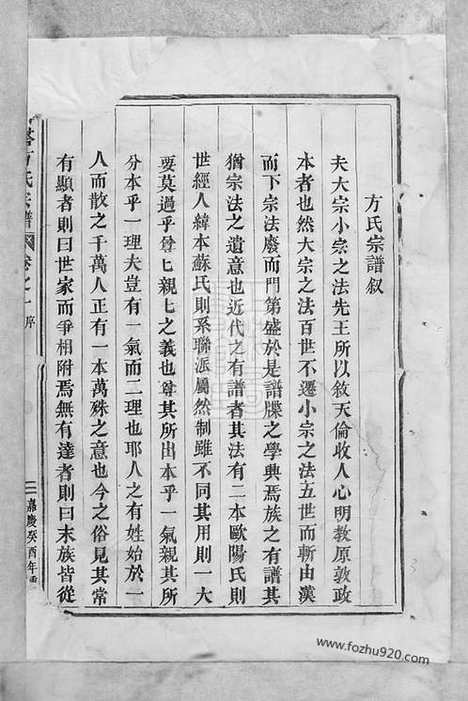 方氏宗譜叙
夫大宗小宗之法先王所以敘天倫收人心明教原敦政
本者也然大宗之法百世不遷小宗之法五世而斬由漢
而下宗法廢而門第盛於是譜牒之學典焉族之有譜其
猶宗法之遺意也近代之有譜者其法有二本歐陽氏則
世經人緯本蘇氏則系聯派屬然制雖不同其用則一大
要莫過乎尊匕親匕之義也尊其所出本乎一氣親其所
分本乎一理夫豈有一氣而二理也耶人之有姓始於一
人而散之千萬人正有一本萬殊之意也今之俗見其常
有顯者則曰世家而爭相附焉無有達者則曰末族皆從
方氏宗譜 卷之一 序
二 嘉慶癸酉年重
www.fozhu920.com